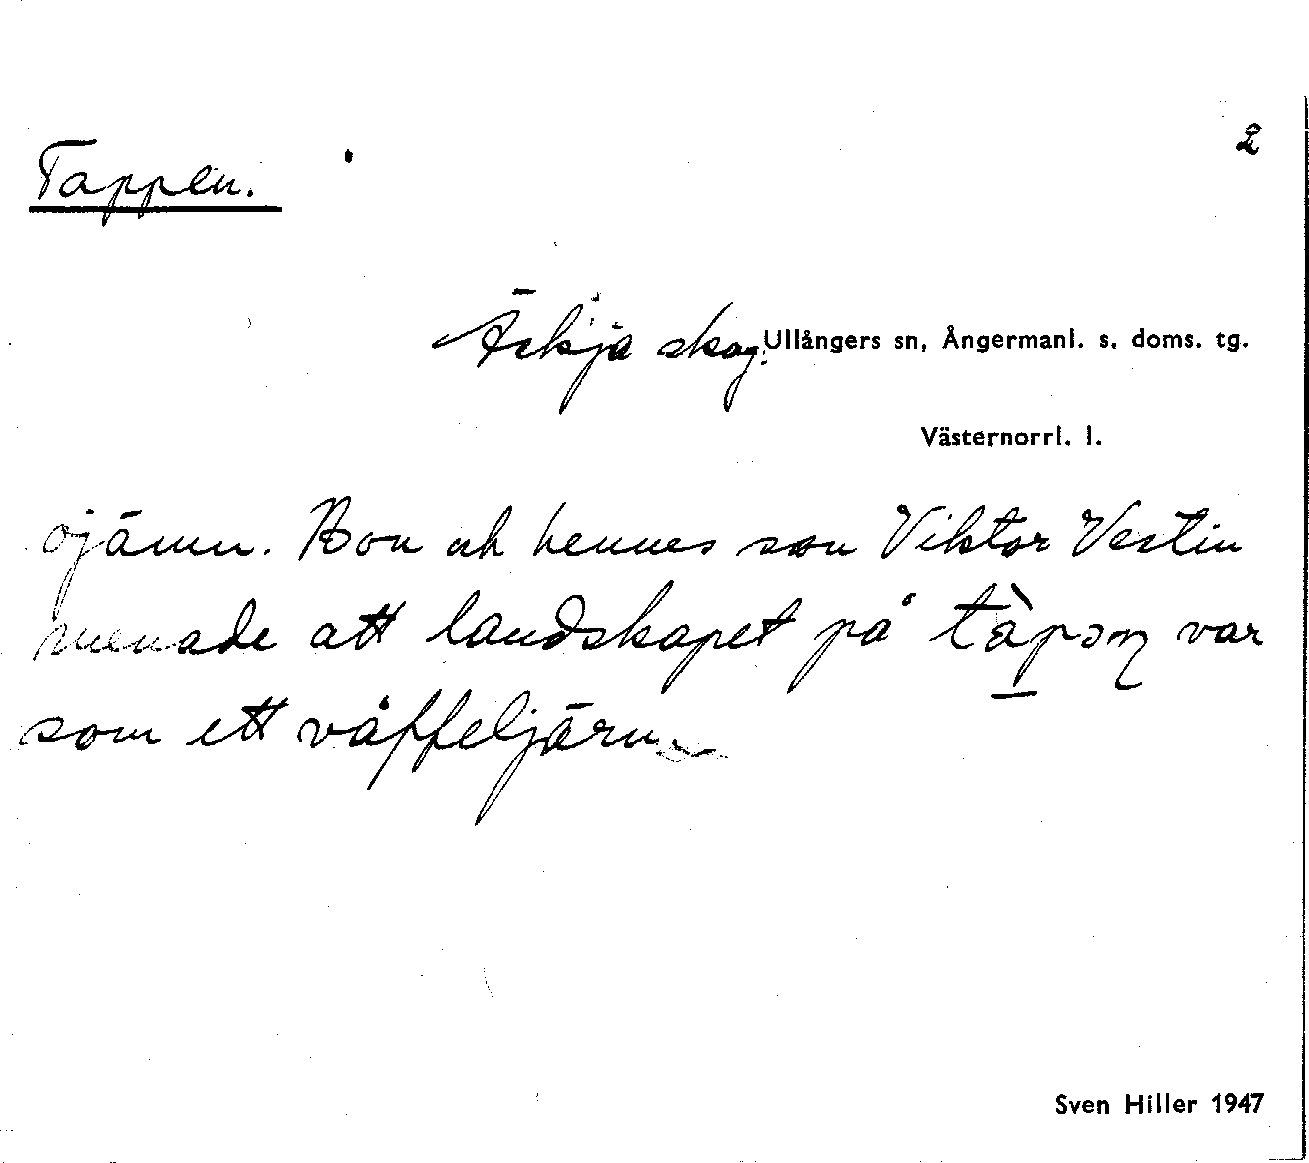 2
Tappen.
Äskja skog. Ullångers sn, Ångermanl. s. doms. tg.
Västernorrl. l.
ojämn. Hon och hennes son Viktor Vestin
menade att landskapet på tàpəɳ var
som ett våffeljärn.
Sven Hiller 1947